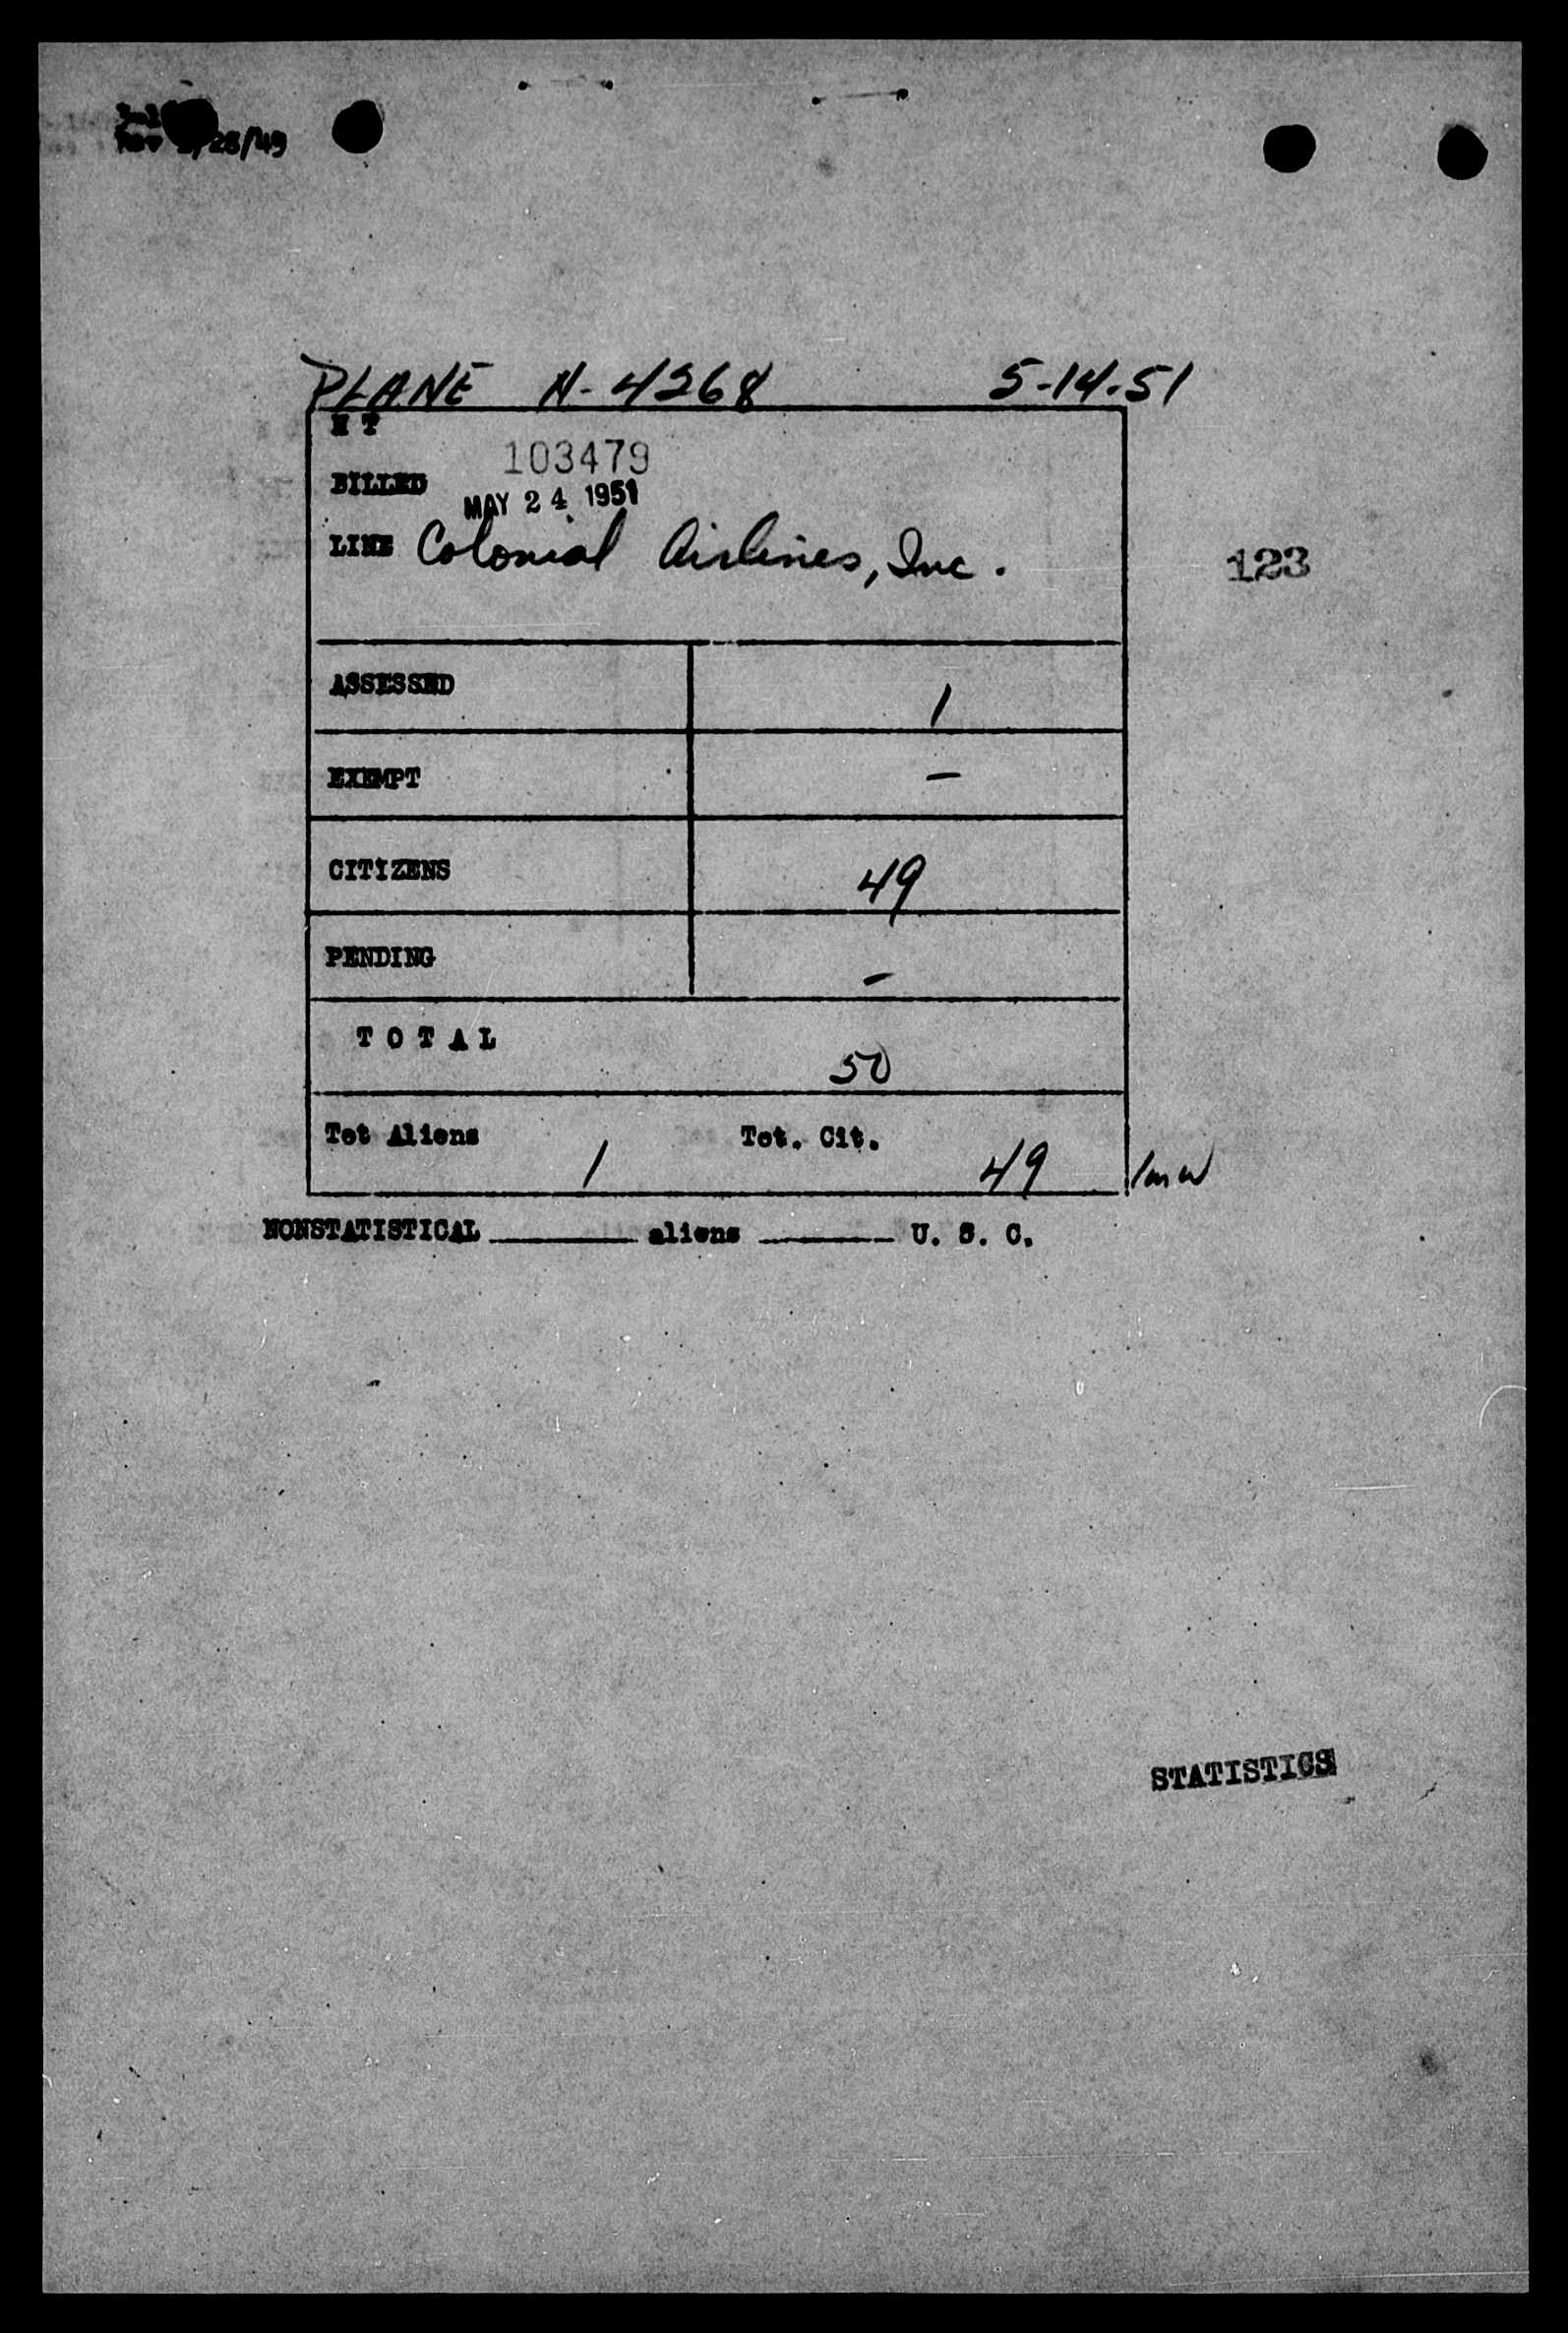 /28/49
PLANE N-4268 5-14-51
H T
103479
BILLED
MAY 24 1951
LINE Colonial Airlines, Inc.
123
ASSESSED 1
EXEMPT –
CITIZENS 49
PENDING –
T O T A L
50
Tot Aliens 1 Tot. Cit. 49
NONSTATISTICAL ______ aliens ______ U. S. C.
STATISTICS